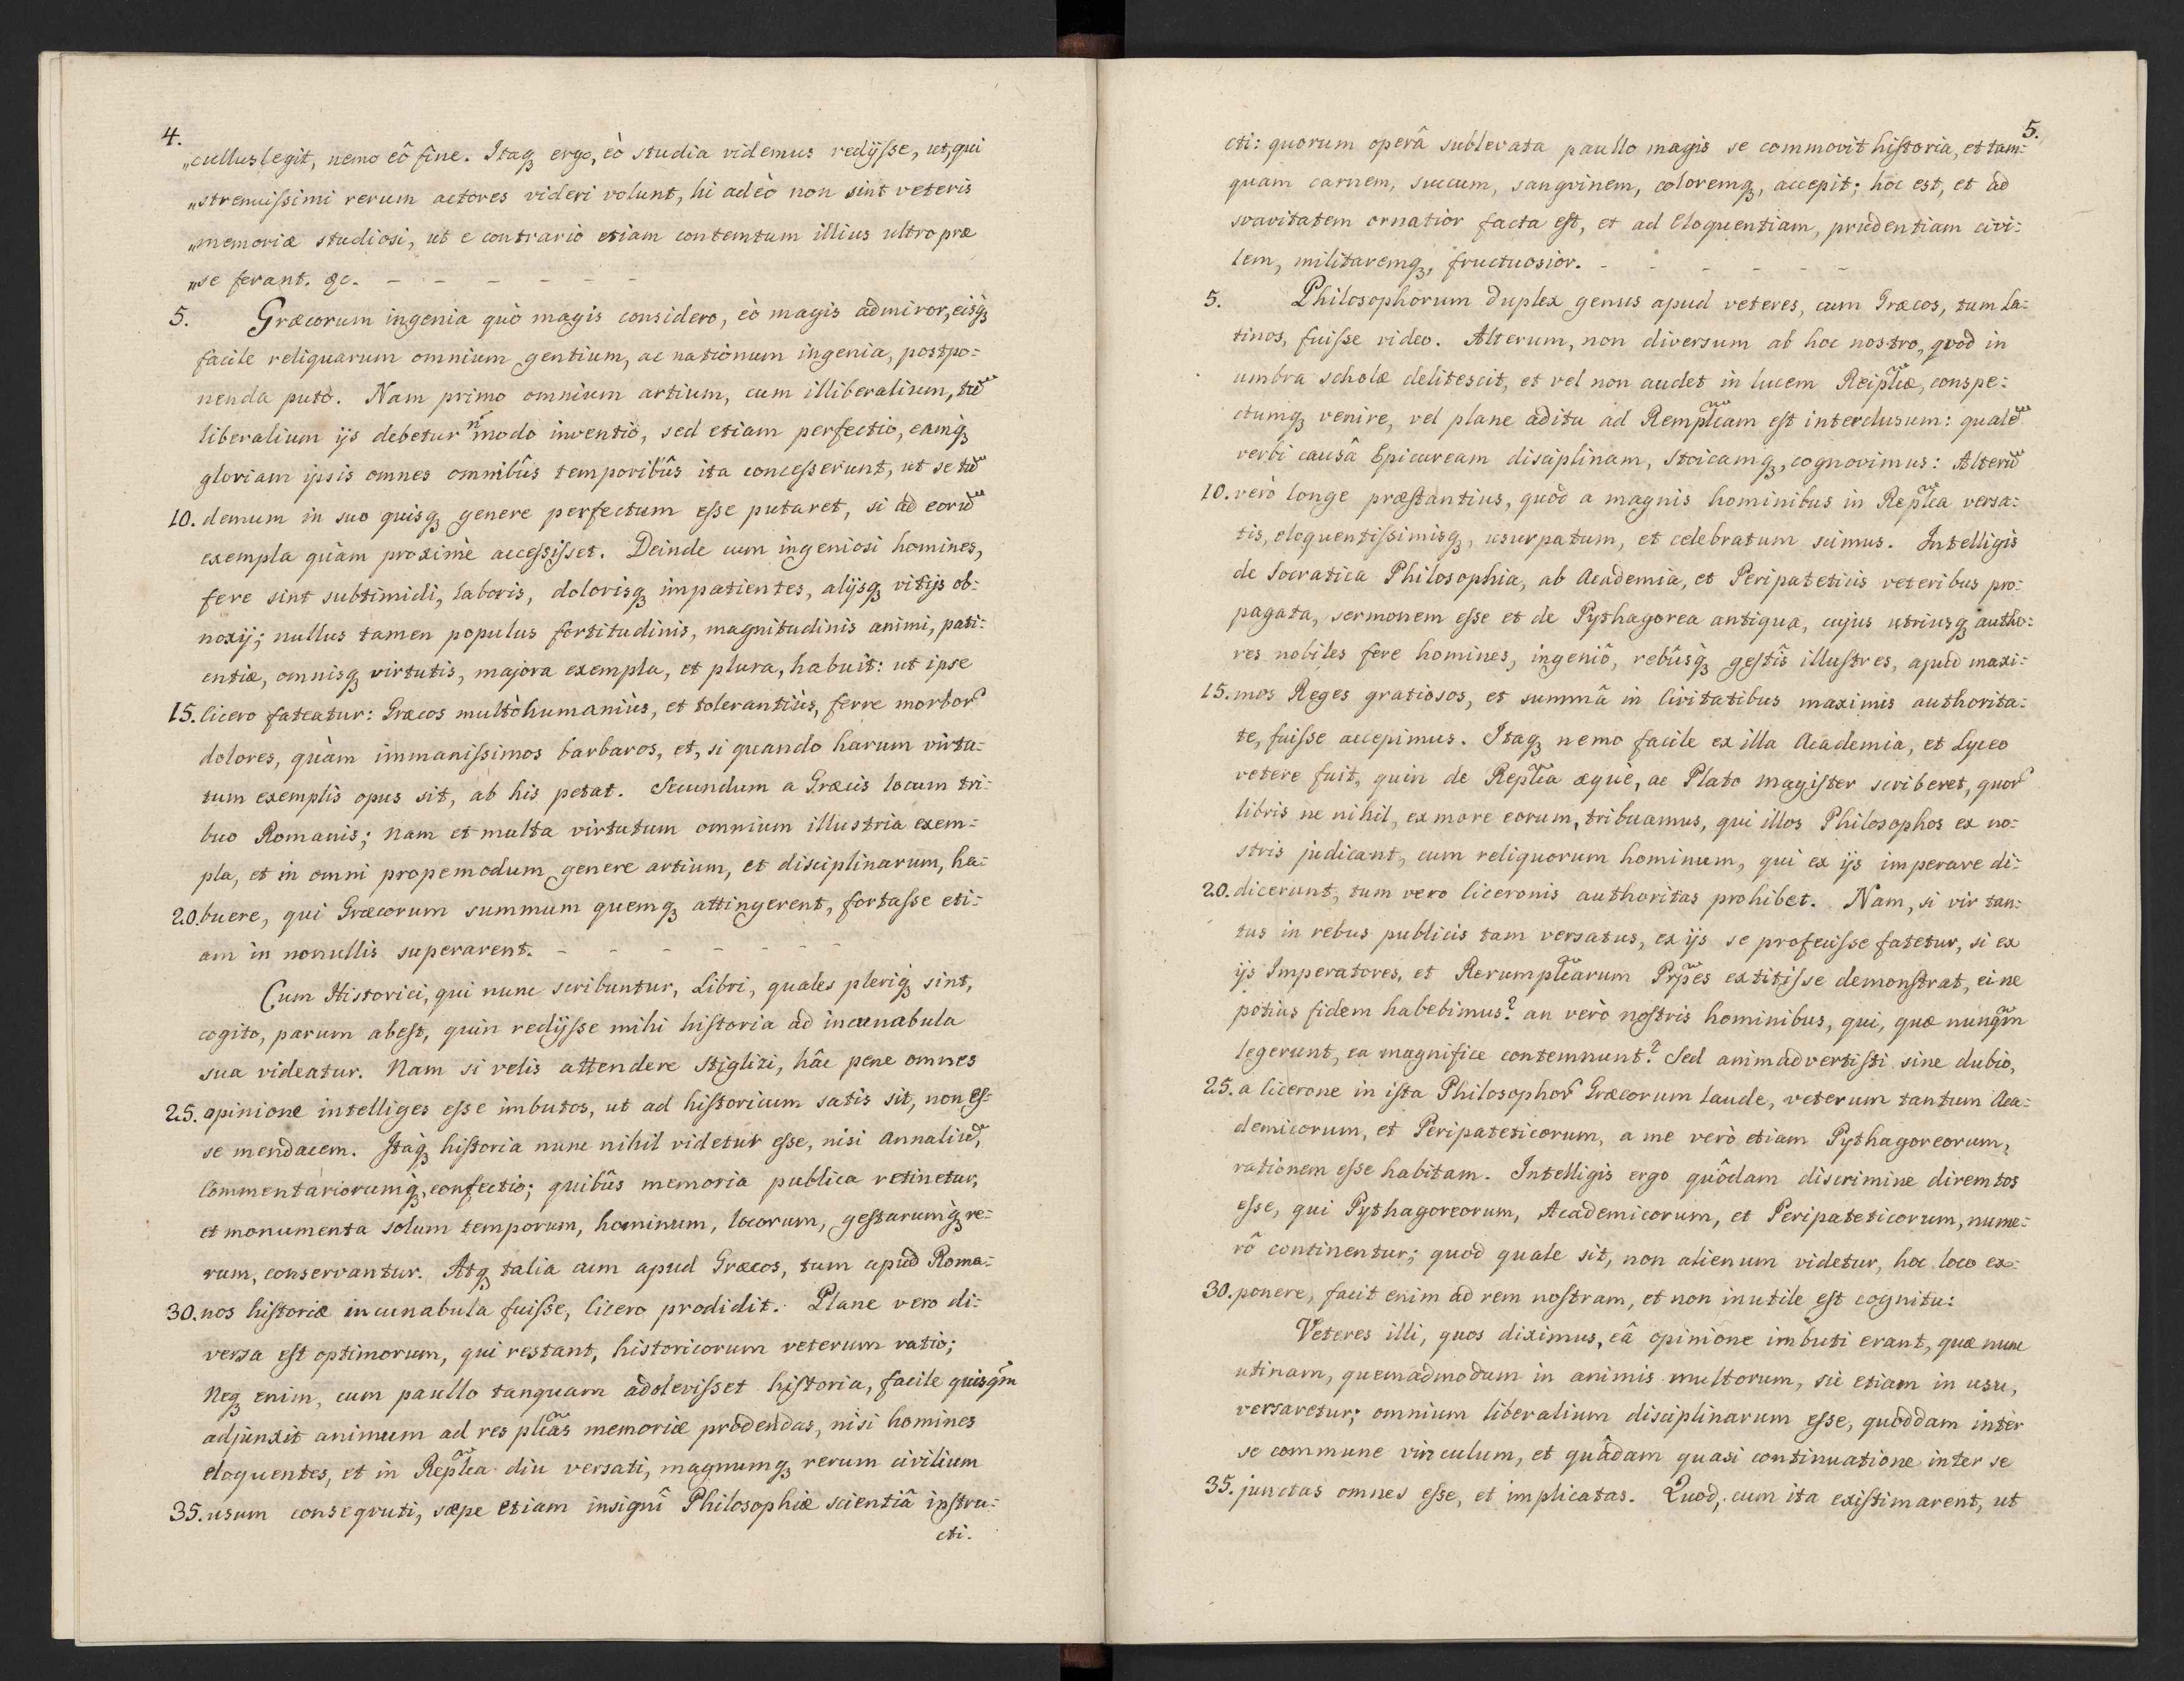 4.
„cullus legit, nemo eô fine. Itaq₃ ergo, eò studia videmus redijſse, ut, qui
„strenuiſsimi rerum actores videri volunt, hi adeò non sint veteris
„memoriæ studiosi, ut e contrario etiam contemtum illius ultro præ
„se ferant. &c. – – – – – –
5. Græcorum ingenia quò magis considero, eò magis admiror, eisq₃
facile reliquarum omnium gentium, ac nationum ingenia, postpo=
nenda puto. Nam primo omnium artium, cum illiberalium, tu͠
liberalium ijs debetur n̄ modo inventio, sed etiam perfectio, eamq₃
gloriam ipsis omnes omnibûs temporibûs ita conceſserunt, ut se tu͠
10. demum in suo quisq₃ genere perfectum eſse putaret, si ad eoru͠
exempla quàm proximè acceſsiſset. Deinde cum ingeniosi homines,
fere sint subtimidi, laboris, dolorisq₃ impatientes, alijsq₃ vitijs ob=
noxij; nullus tamen populus fortitudinis, magnitudinis animi, pati=
entiæ, omnisq₃ virtutis, majora exempla, et plura, habuit: ut ipse
15. Cicero fateatur: Græcos multò humaniùs, et tolerantiùs, ferre morbor̄
dolores, quàm immaniſsimos barbaros, et, si quando harum virtu=
tum exemplis opus sit, ab his petat. Secundum a Græcis locum tri=
buo Romanis; nam et multa virtutum omnium illustria exem=
pla, et in omni propemodum genere artium, et disciplinarum, ha=
20. buere, qui Græcorum summum quemq₃ attingerent, fortaſse eti=
am in nonullis superarent. – – – – – – –
Cum Historici, qui nunc scribuntur, Libri, quales pleriq₃ sint,
cogito, parum abest, quin redijſse mihi hiſtoria ad incunabula
sua videatur. Nam si velis attendere Stiglizi, hâc pene omnes
25. opinione intelliges eſse imbutos, ut ad hiſtoricum satis sit, non eſ=
se mendacem. Itaq₃ hiſtoria nunc nihil videtur eſse, nisi Annaliu͠,
Commentariorumq₃, confectio; quibûs memoria publica retinetur,
et monumenta solum temporum, hominum, locorum, geſtarumq₃ re=
rum, conservantur. Atq₃ talia cum apud Græcos, tum apud Roma=
30. nos hiſtoriæ incunabula fuiſse, Cicero prodidit. Plane vero di=
versa eſt optimorum, qui restant, historicorum veterum ratio;
Neq₃ enim, cum paullo tanquam adoleviſset hiſtoria, facile quisq̃m
adjunxit animum ad res pl͠cas memoriæ prodendas, nisi homines
eloquentes, et in Repl͠ca diu versati, magnumq₃ rerum civilium
35. usum conseqvuti, sæpe etiam insignî Philosophiæ scientiâ inſtru=
cti.
5.
cti: quorum operâ sublevata paullo magis se commovit hiſtoria, et tam=
quam carnem, succum, sangvinem, coloremq₃, accepit; hoc est, et ad
svavitatem ornatior facta eſt, et ad Eloquentiam, prudentiam civi=
lem, militaremq₃, fructuosior. – – – – – – –
5. Philosophorum duplex genus apud veteres, cum Græcos, tum La=
tinos, fuiſse video. Alterum, non diversum ab hoc nostro, qvod in
umbra scholæ delitescit, et vel non audet in lucem Reipl͠cæ, conspe=
ctumq₃ venire, vel plane aditu ad Rempl͠cam eſt interclusum: quale͠
verbi causâ Epicuream disciplinam, Stoicamq₃, cognovimus: Alteru͠
10. verò longe præſtantius, quòd a magnis hominibus in Repl͠ca versa=
tis, eloquentiſsimisq₃, usurpatum, et celebratum scimus. Intelligis
de Socratica Philosophia, ab Academia, et Peripateticis veteribus pro=
pagata, sermonem eſse et de Pythagorea antiqua, cujus utriusq₃ autho=
res nobiles fere homines, ingeniô, rebûsq₃ geſtîs illuſtres, apud maxi=
15. mos Reges gratiosos, et summâ in Civitatibus maximis authorita=
te, fuiſse accepimus. Itaq₃ nemo facile ex illa Academia, et Lyceo
vetere fuit, quin de Repl͠ca æque, ac Plato magiſter scriberet, quor̄
libris ne nihil, ex more eorum, tribuamus, qui illos Philosophos ex no=
stris judicant, cum reliquorum hominum, qui ex ijs imperare di=
20. dicerunt, tum vero Ciceronis authoritas prohibet. Nam, si vir tan=
tus in rebus publicis tam versatus, ex ijs se profeciſse fatetur, si ex
ijs Imperatores, et Rerumpl͠carum Pr͠pes extitiſse demonſtrat, eine
potius fidem habebimus? an verò noſtris hominibus, qui, quæ nunq̃m
legerunt, ea magnifice contemnunt? Sed animadvertiſti sine dubio,
25. a Cicerone in iſta Philosophor̄ Græcorum laude, veterum tantum Aca=
demicorum, et Peripateticorum, a me verò etiam Pythagoreorum,
rationem eſse habitam. Intelligis ergo quôdam discrimine diremtos
eſse, qui Pythagoreorum, Academicorum, et Peripateticorum, nume=
rô continentur; quod quale sit, non alienum videtur, hoc loco ex=
30. ponere, facit enim ad rem noſtram, et non inutile eſt cognitu:
Veteres illi, quos diximus, eâ opinione imbuti erant, quæ nunc
utinam, quemadmodum in animis multorum, sic etiam in usu,
versaretur; omnium liberalium disciplinarum eſse, quoddam inter
se commune vinculum, et quâdam quasi continuatione inter se
35. junctas omnes eſse, et implicatas. Quod, cum ita exiſtimarent, ut